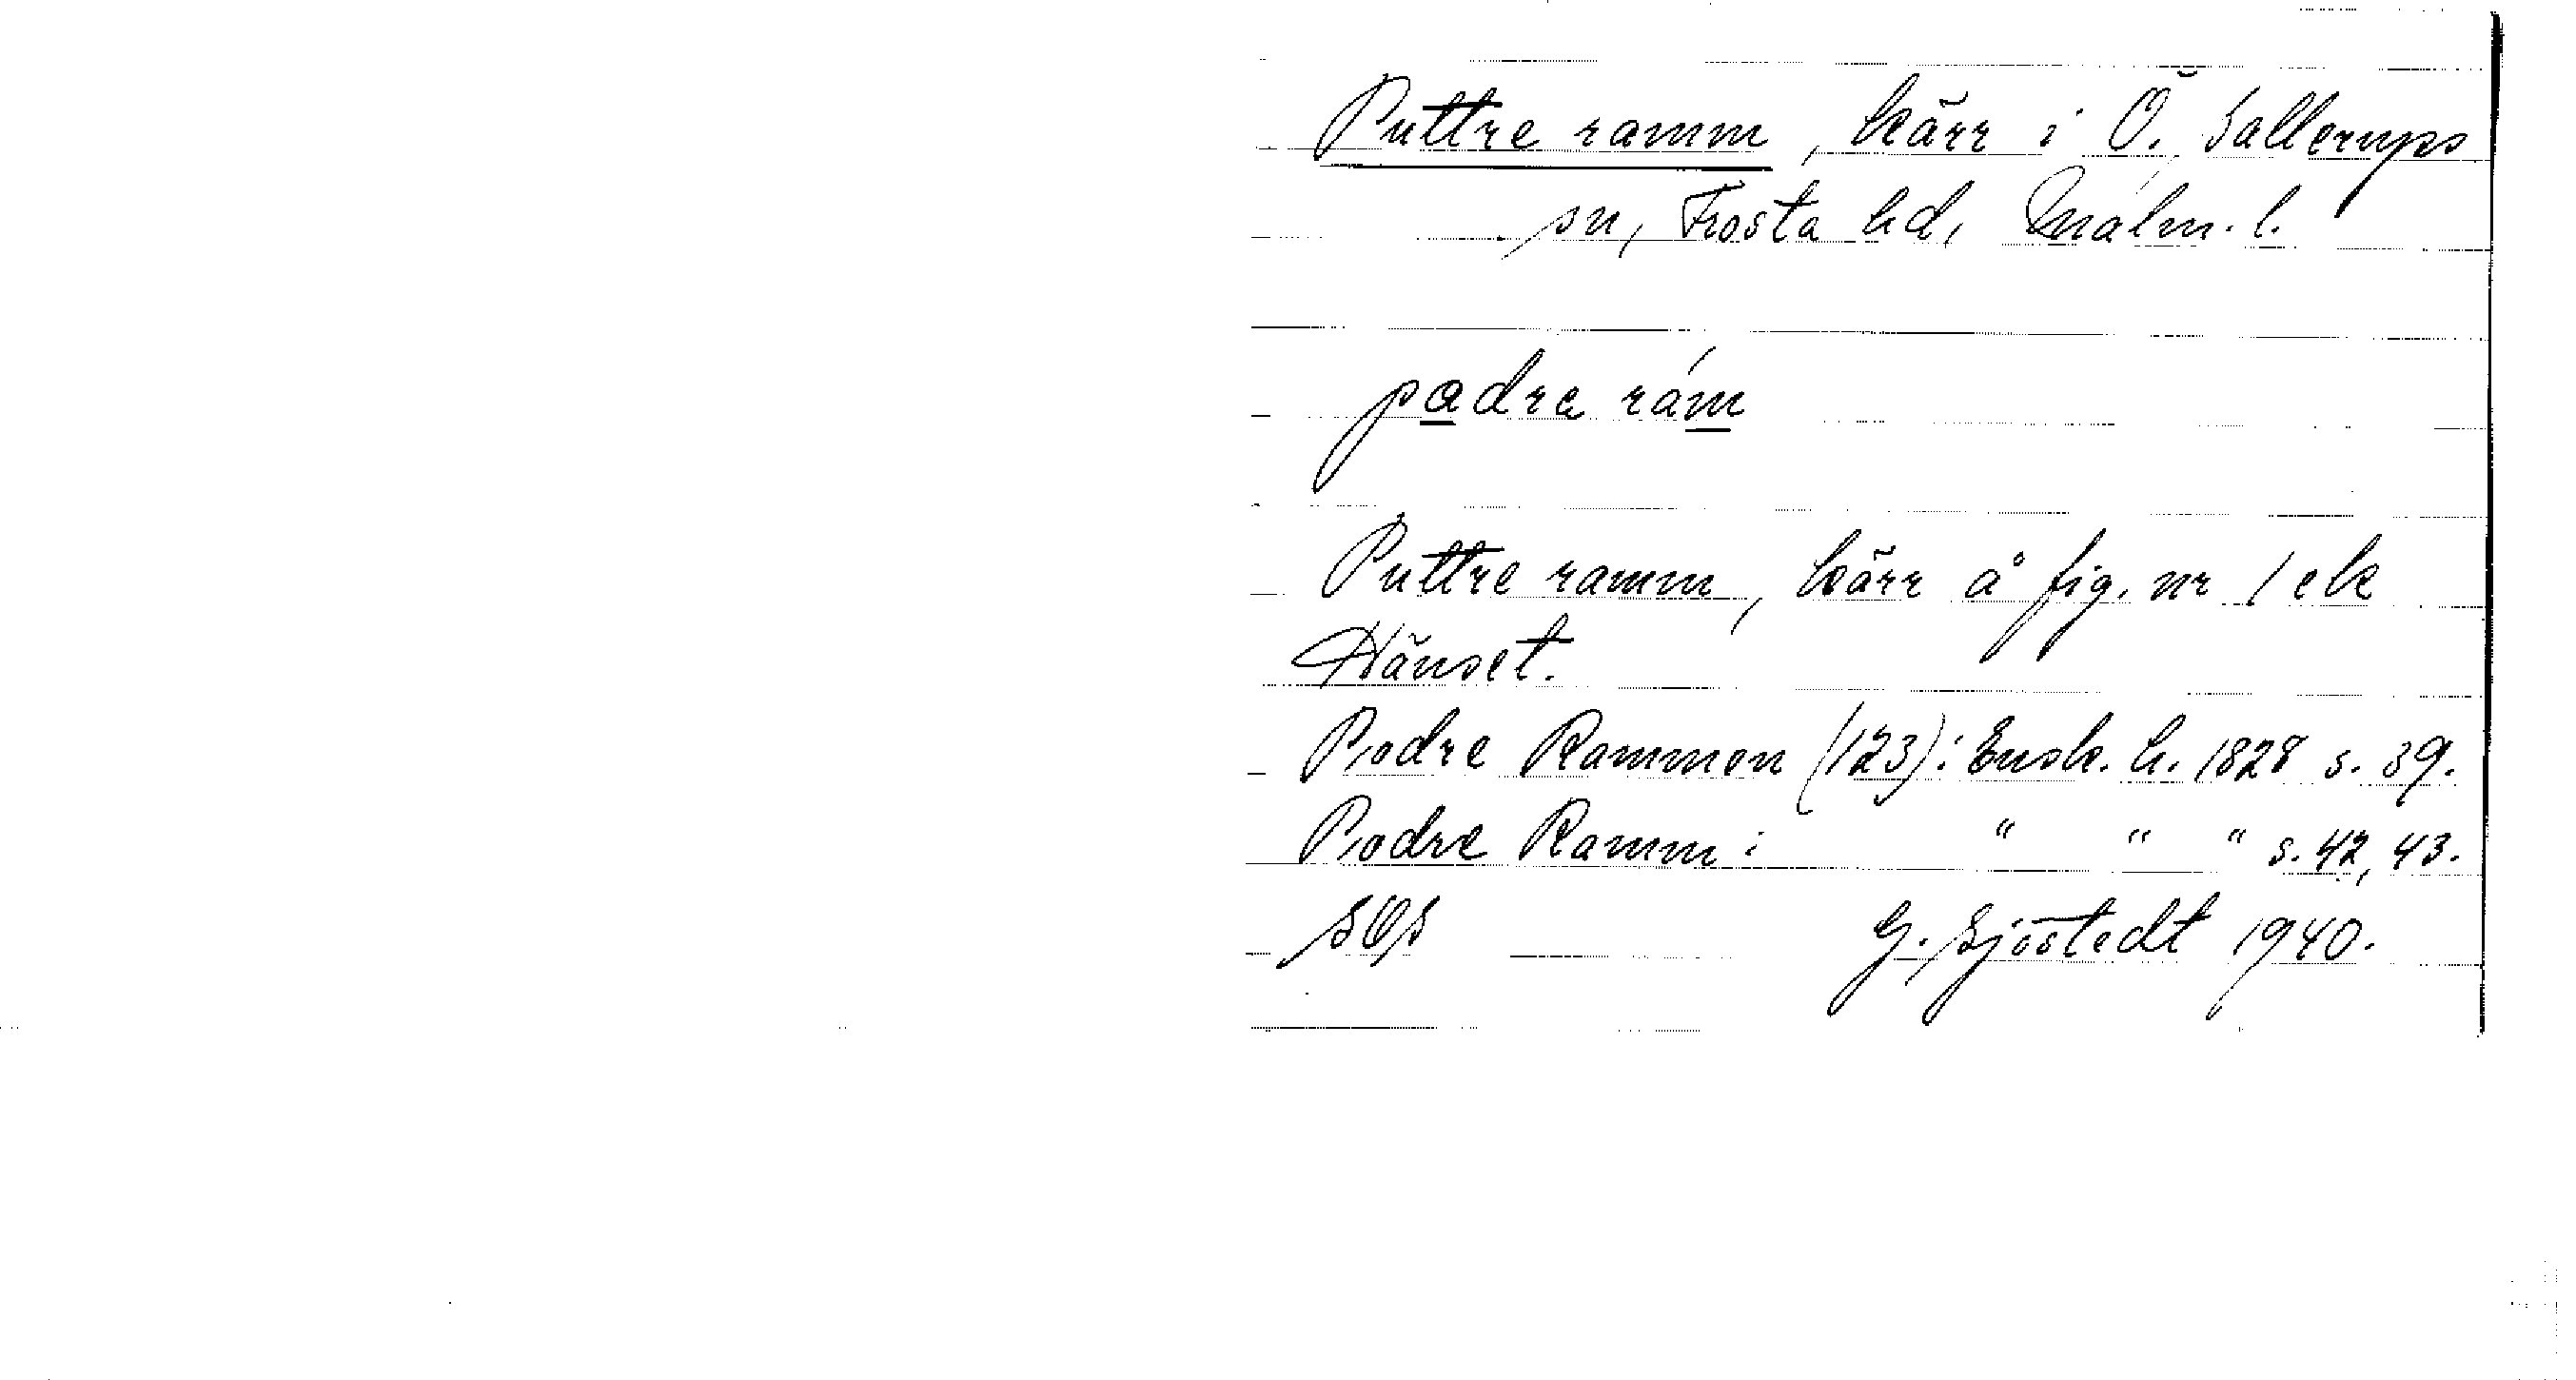 Puttre ramm, kärr i Ö. Sallerups
sn, Frosta hd, Malm. l.
padra rám
Puttre ramm, kärr å fig. nr 1 ek
Hänset.
Podre Rammen (123): Ensk. h. 1828 s. 39.
Podre Ramm: " " " s. 42, 43.
SOS G. Sjöstedt 1940.